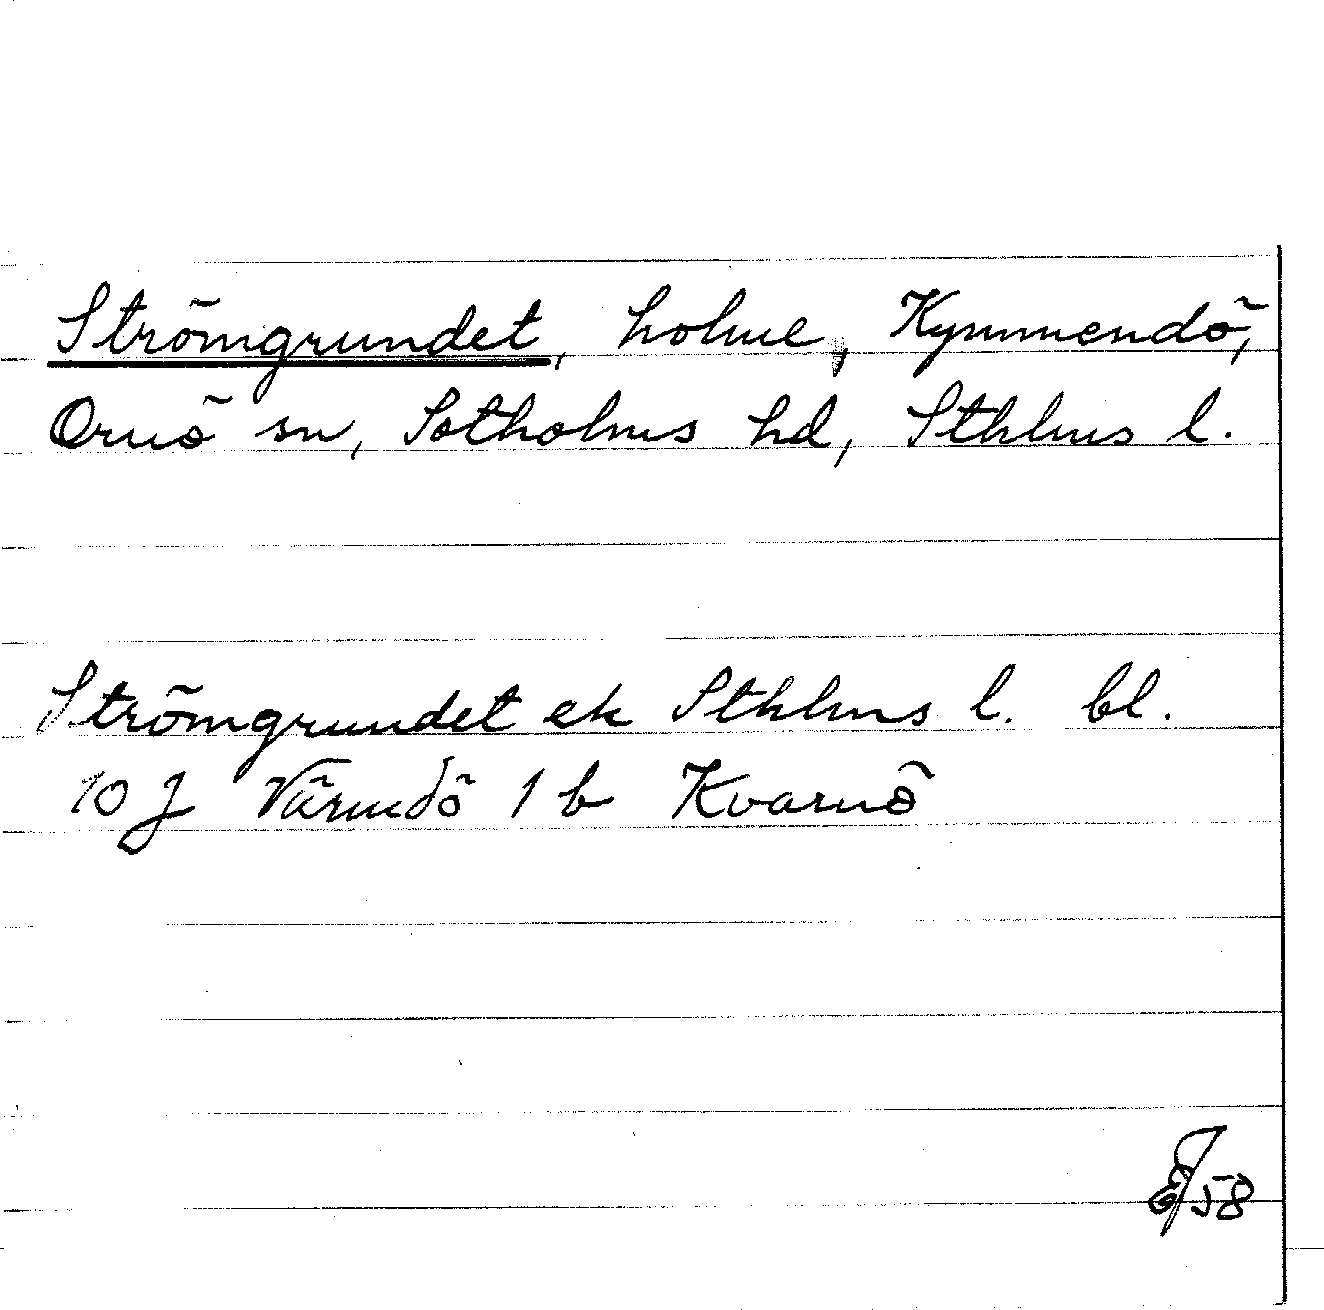 Strömgrundet, holme, Kymmendö,
Ornö sn, Sotholms hd, Sthlms l.
Strömgrundet ek Sthlms l. bl.
10 J Värmdö 1 b Kvarnö
58